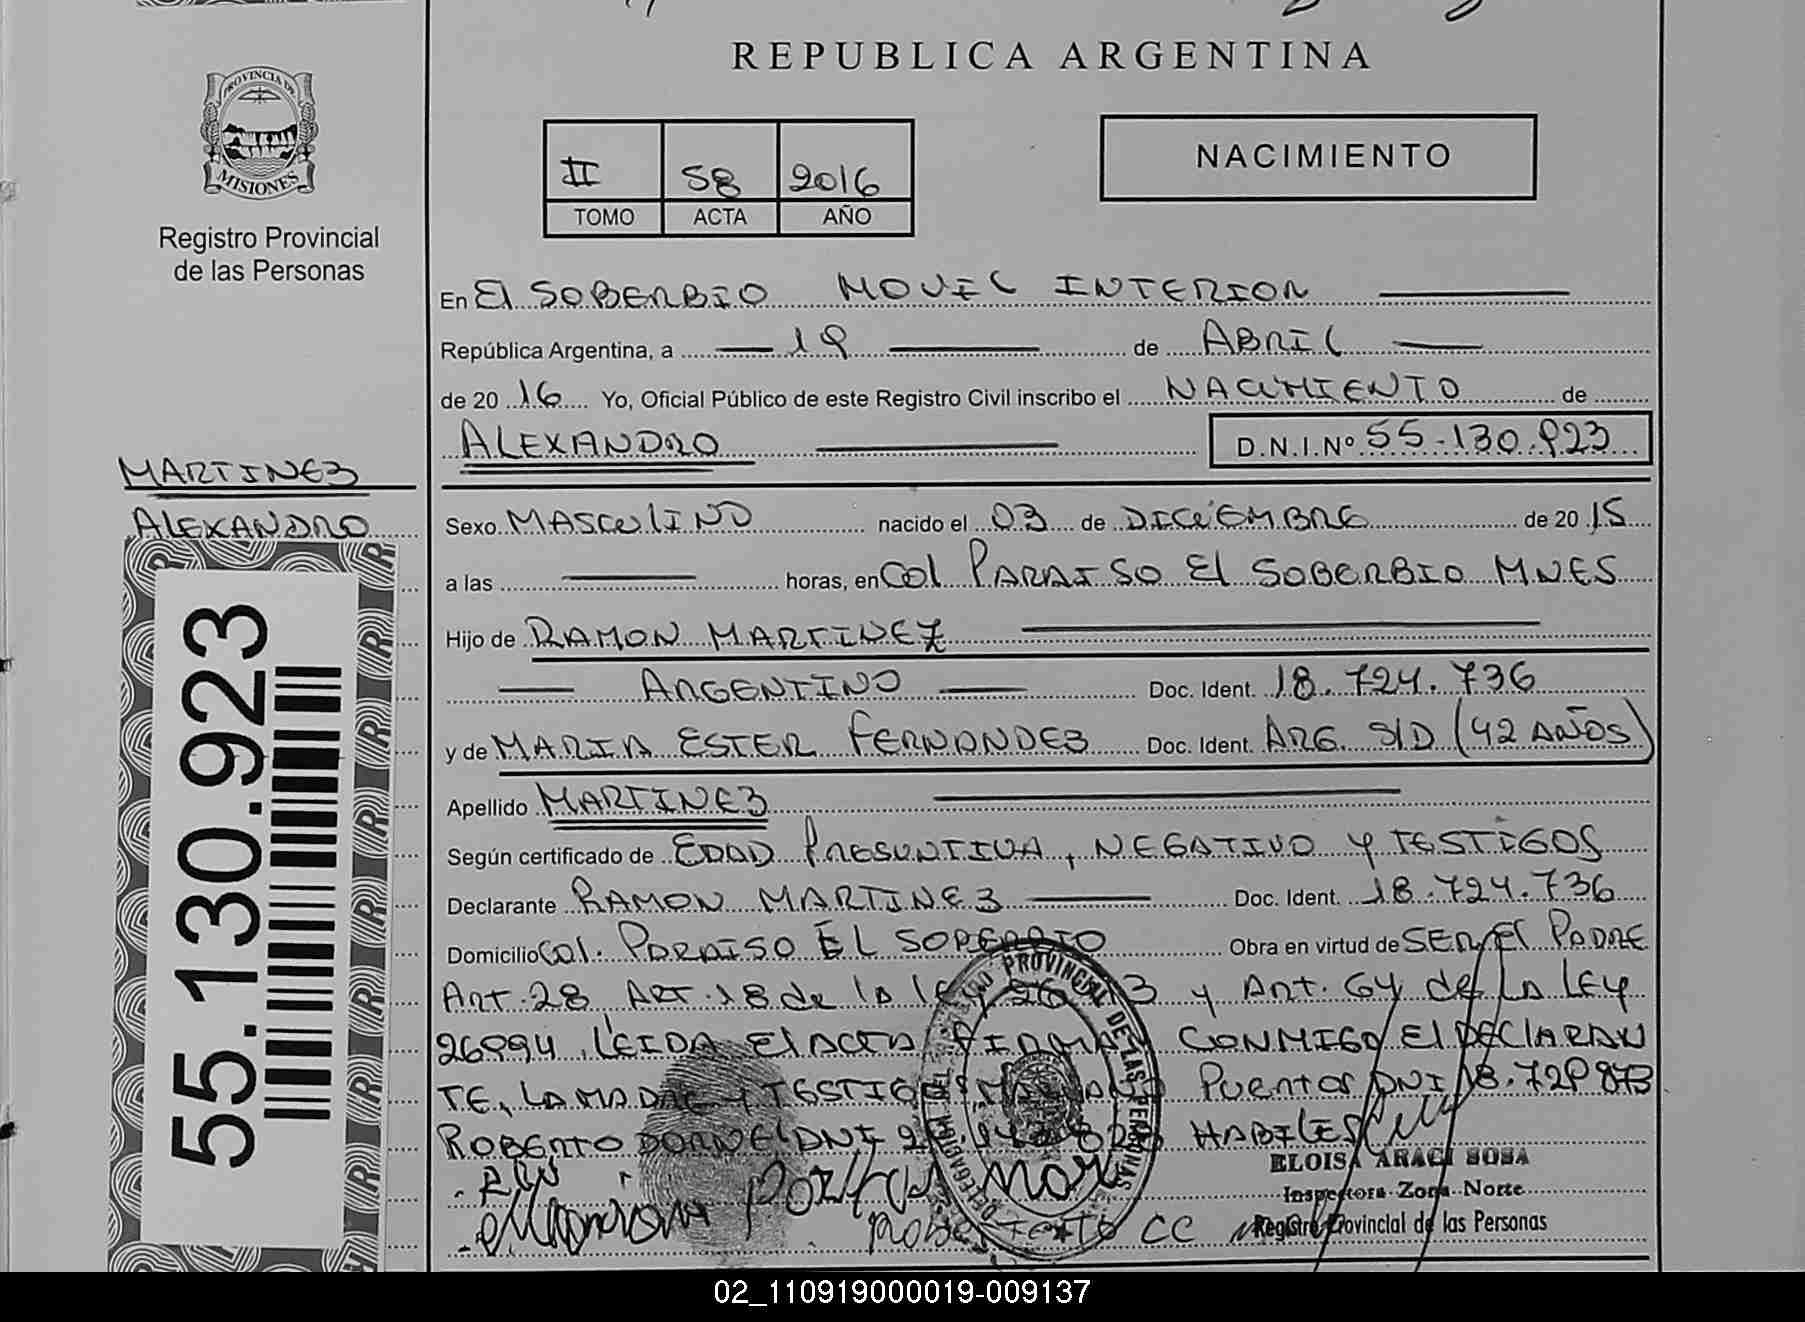 REPUBLICA ARGENTINA
PROVINCIA DE
MISIONES
Registro Provincial
de las Personas
II 58 2016
TOMO ACTA AÑO
NACIMIENTO
En El SOBERBIO MOVIL INTERIOR
República Argentina, a 19 de ABRIL
de 20 16 Yo, Oficial Público de este Registro Civil inscribo el NACIMIENTO de
ALEXANDRO D.N.I.Nº 55.130.923
MARTINEZ
ALEXANDRO
55.130.923
Sexo MASCULINO nacido el 03 de DICIEMBRE de 20 15
a las horas, en Col PARAISO El SOBERBIO MNES
Hijo de RAMON MARTINEZ
ARGENTINO Doc. Ident. 18.724.736
y de MARIA ESTER FERNANDEZ Doc. Ident. ARG. S/D (42 AÑOS)
Apellido MARTINEZ
Según certificado de EDAD PRESUNTIVA, NEGATIVO Y TESTIGOS
Declarante RAMON MARTINEZ Doc. Ident. 18.724.736
Domicilio Col. PARAISO EL SOBERBIO Obra en virtud de SER El PADRE
Art. 28 ART. 18 de la ley y Art. 64 de LA LEY
26994 LEIDA El ACTA FIRMA CONMIGO El DECLARAN
TE, LA MADRE Y TESTIGOS DNI 18.729873
ROBERTO DNI HABILES
PROVINCIAL DE LAS PERSONAS
ELOISA ARACI SOSA
Inspectora Zona Norte
Registro Provincial de las Personas
02_110919000019-009137